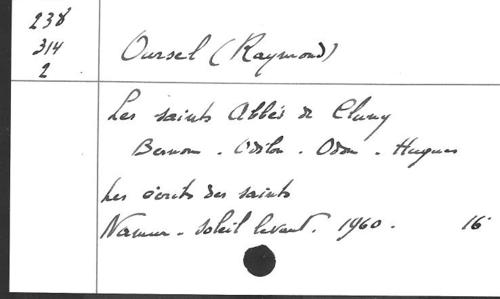 238
314
2
Oursel (Raymond)
Les saints Abbés de Cluny
Bernon - Odilon - Odon - Hugues
Les écrits des saints
Namur - Soleil levant. 1960. 16°